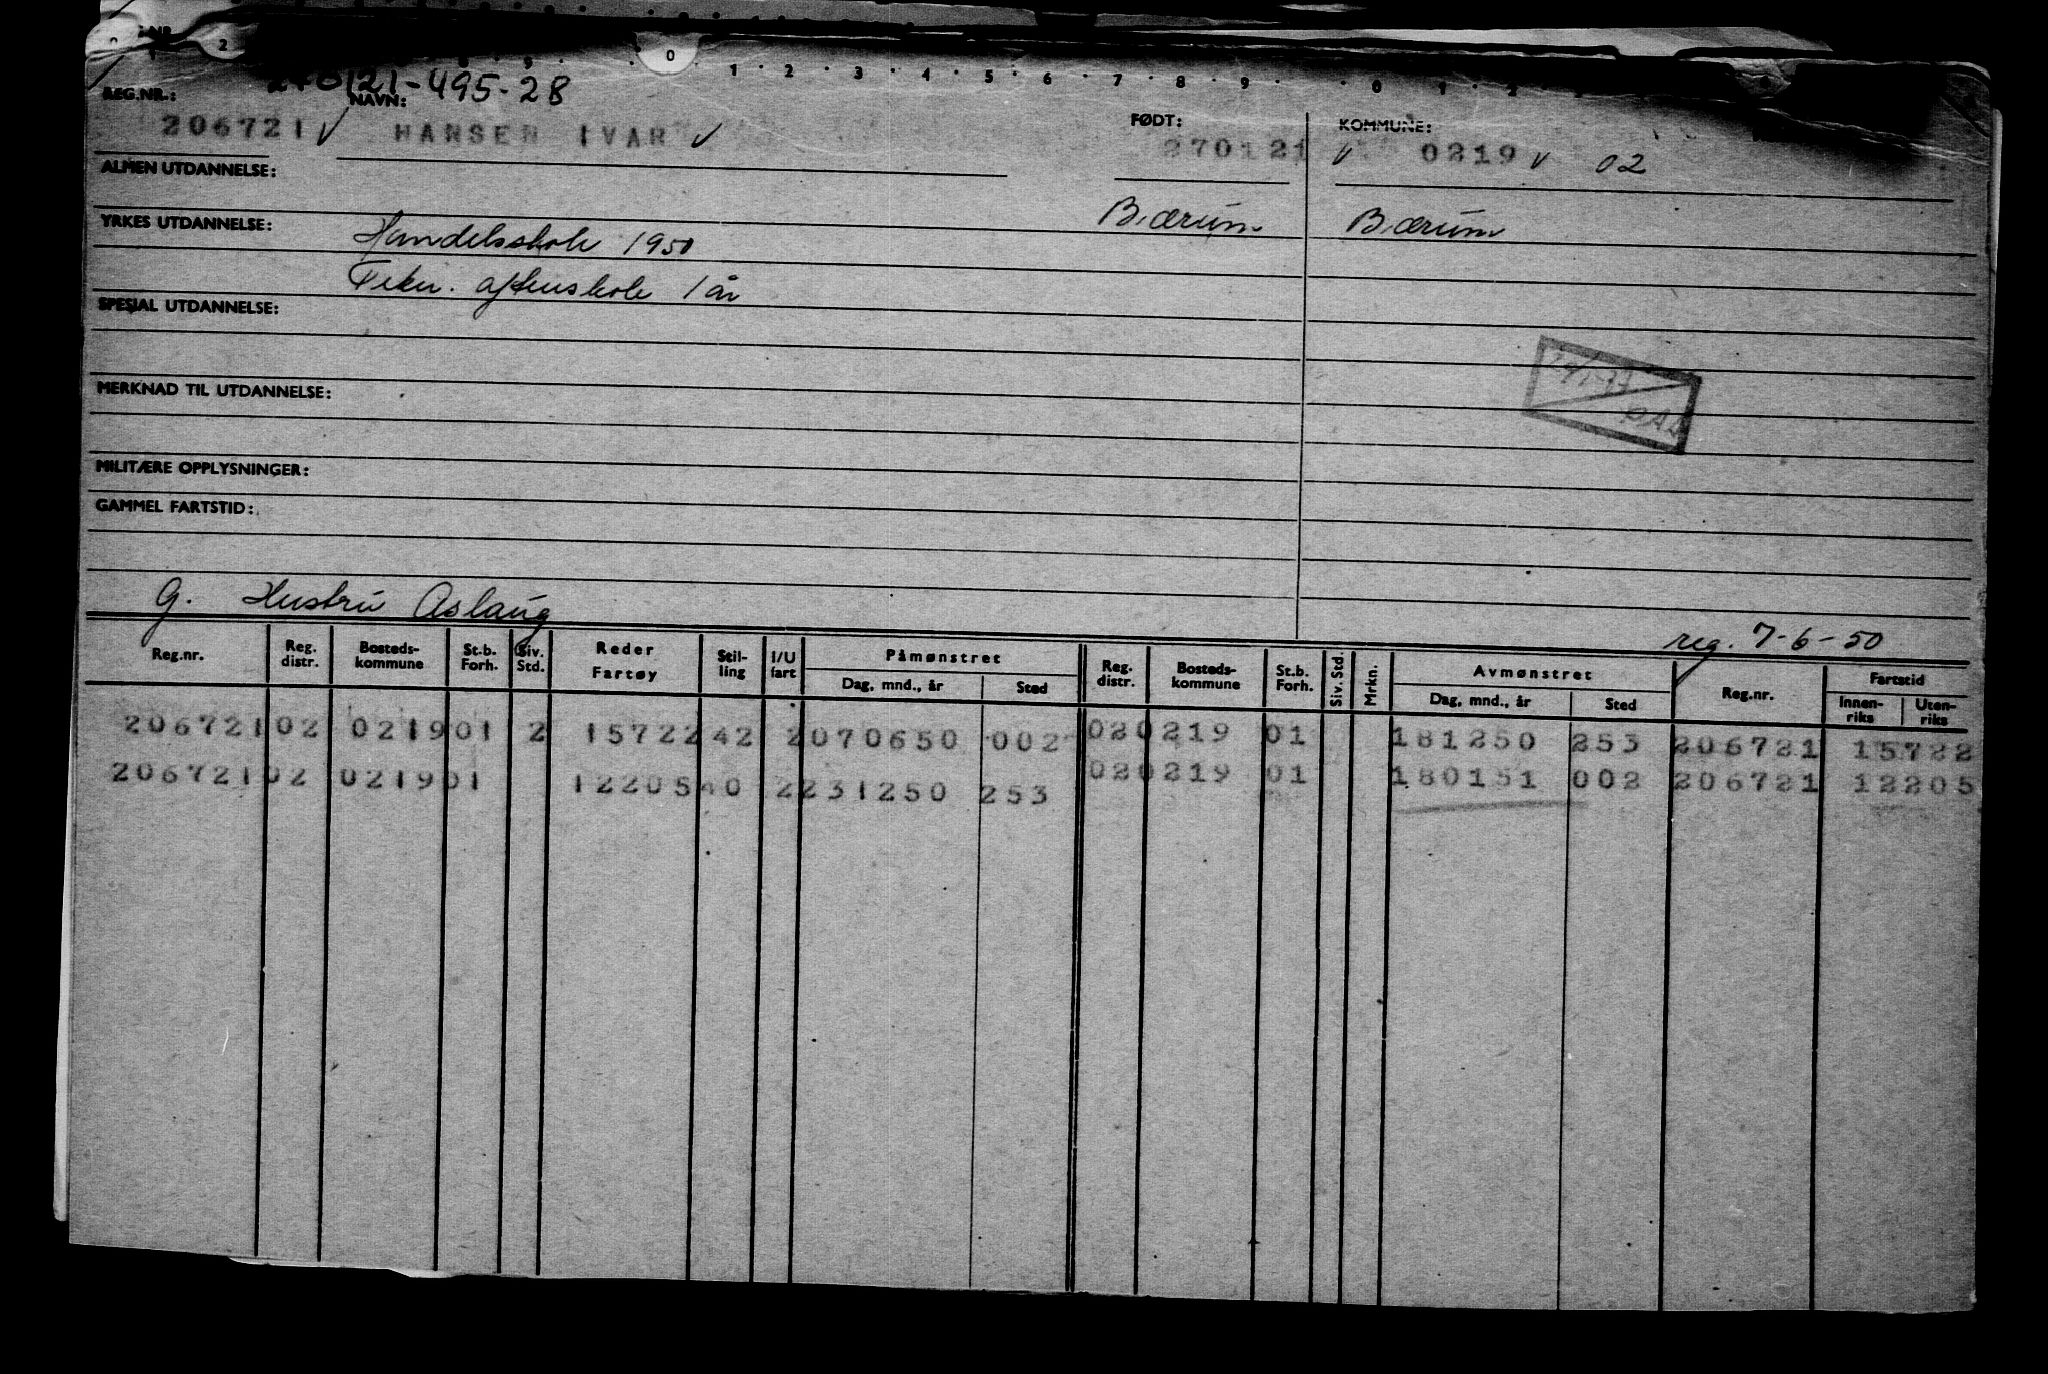 0 1 2 3 4 5 6 7 8 9 0 1 2
270121-495-28
REG.NR.: NAVN: FØDT: KOMMUNE:
206721 HANSEN IVAR 270121 0219 02
ALMEN UTDANNELSE:
Bærum Bærum
YRKES UTDANNELSE: Handelsskole 1950
Tekn. aftenskole 1 år
SPESIAL UTDANNELSE:
MERKNAD TIL UTDANNELSE:
MILITÆRE OPPLYSNINGER:
GAMMEL FARTSTID:
G. Hustru Aslaug
reg. 7-6-50
Reg.nr. Reg. distr. Bosteds-kommune St.b. Forh. Siv. Std. Reder Fartøy Stil-ling I/U fart Påmønstret Dag, mnd., år Sted Reg. distr. Bosteds-kommune St.b. Forh. Siv. Std. Mrkn. Avmønstret Dag, mnd., år Sted Reg.nr. Fartstid Innen-riks Uten-riks
206721 02 0219 01 2 15722 42 2 070650 002 02 0219 01 181250 253 206721 15722
206721 02 0219 01 12205 40 2 231250 253 02 0219 01 180151 002 206721 12205